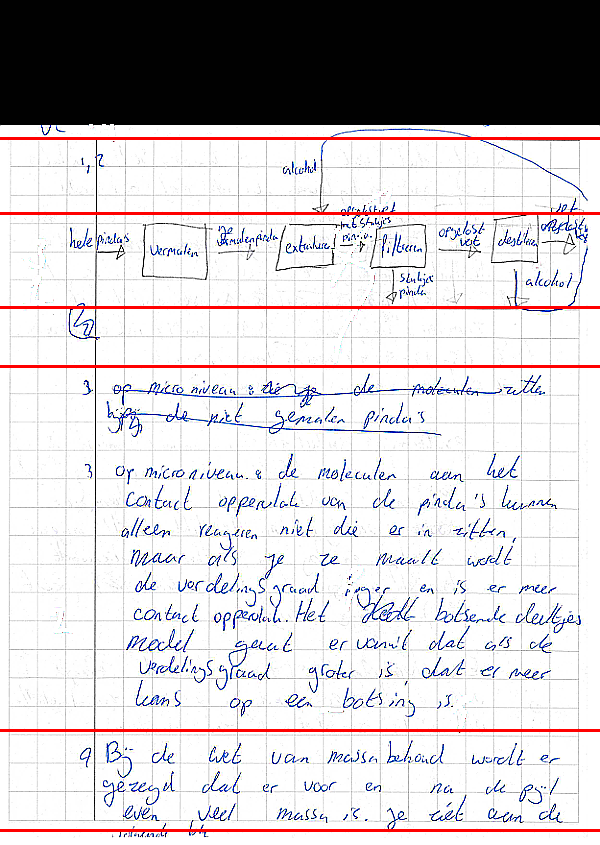 1, 2
alcohol
hele pinda's
vermalen
gemalen pinda
extraheren
opgelost vet
met stukjes
pinda.
filtreren
opgelost
vet
destilleren
vet
stukjes
pinda
alcohol
3 op micro niveau: de moleculen zitten
bij de niet gemalen pinda's
3 op microniveau: de moleculen aan het
contact oppervlak van de pinda's kunnen
alleen reageren niet die er in zitten,
maar als je ze maalt wordt
de verdelingsgraad hoger en is er meer
contact oppervlak. Het botsende deeltjes
model gaat er vanuit dat als de
verdelingsgraad groter is, dat er meer
kans op een botsing is.
9 Bij de wet van massa behoud wordt er
gezegd dat er voor en na de pijl
even veel massa is. je ziet aan de